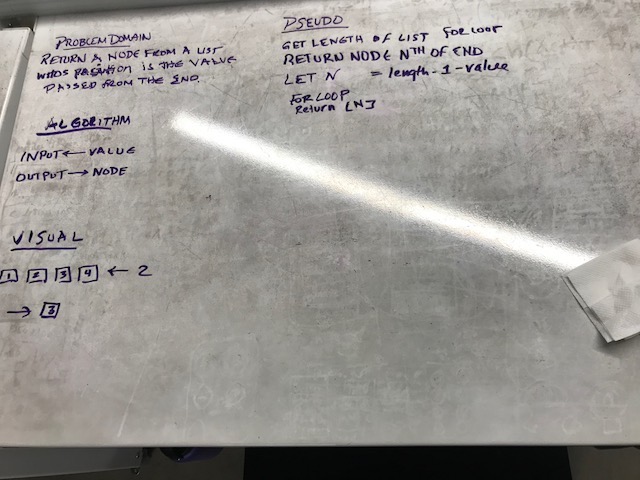 PROBLEM DOMAIN
RETURN A NODE FROM A LIST
WHOS POSITION IS THE VALUE
PASSED FROM THE END.
ALGORITHM
INPUT ← VALUE
OUTPUT → NODE
VISUAL
1 2 3 4 ← 2
→ 3
PSEUDO
GET LENGTH OF LIST FOR LOOP
RETURN NODE NTH OF END
LET N = length - 1 - value
FOR LOOP
Return [N]